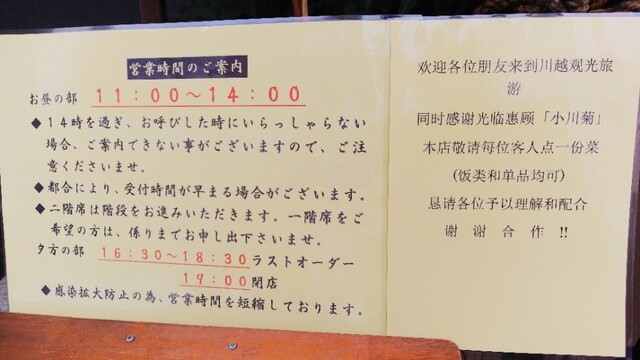 営業時間のご案内
お昼の部 11:00〜14:00
◆14時を過ぎ、お呼びした時にいらっしゃらない
場合、ご案内できない事がございますので、ご注
意くださいませ。
◆都合により、受付時間が早まる場合がございます。
◆二階席は階段をお進みいただきます。一階席をご
希望の方は、係りまでお申し出下さいませ。
夕方の部 16:30〜18:30ラストオーダー
19:00閉店
◆感染拡大防止の為、営業時間を短縮しております。
欢迎各位朋友来到川越观光旅
游
同时感谢光临惠顾「小川菊」
本店敬请每位客人点一份菜
(饭类和单品均可)
恳请各位予以理解和配合
谢 谢 合 作 !!